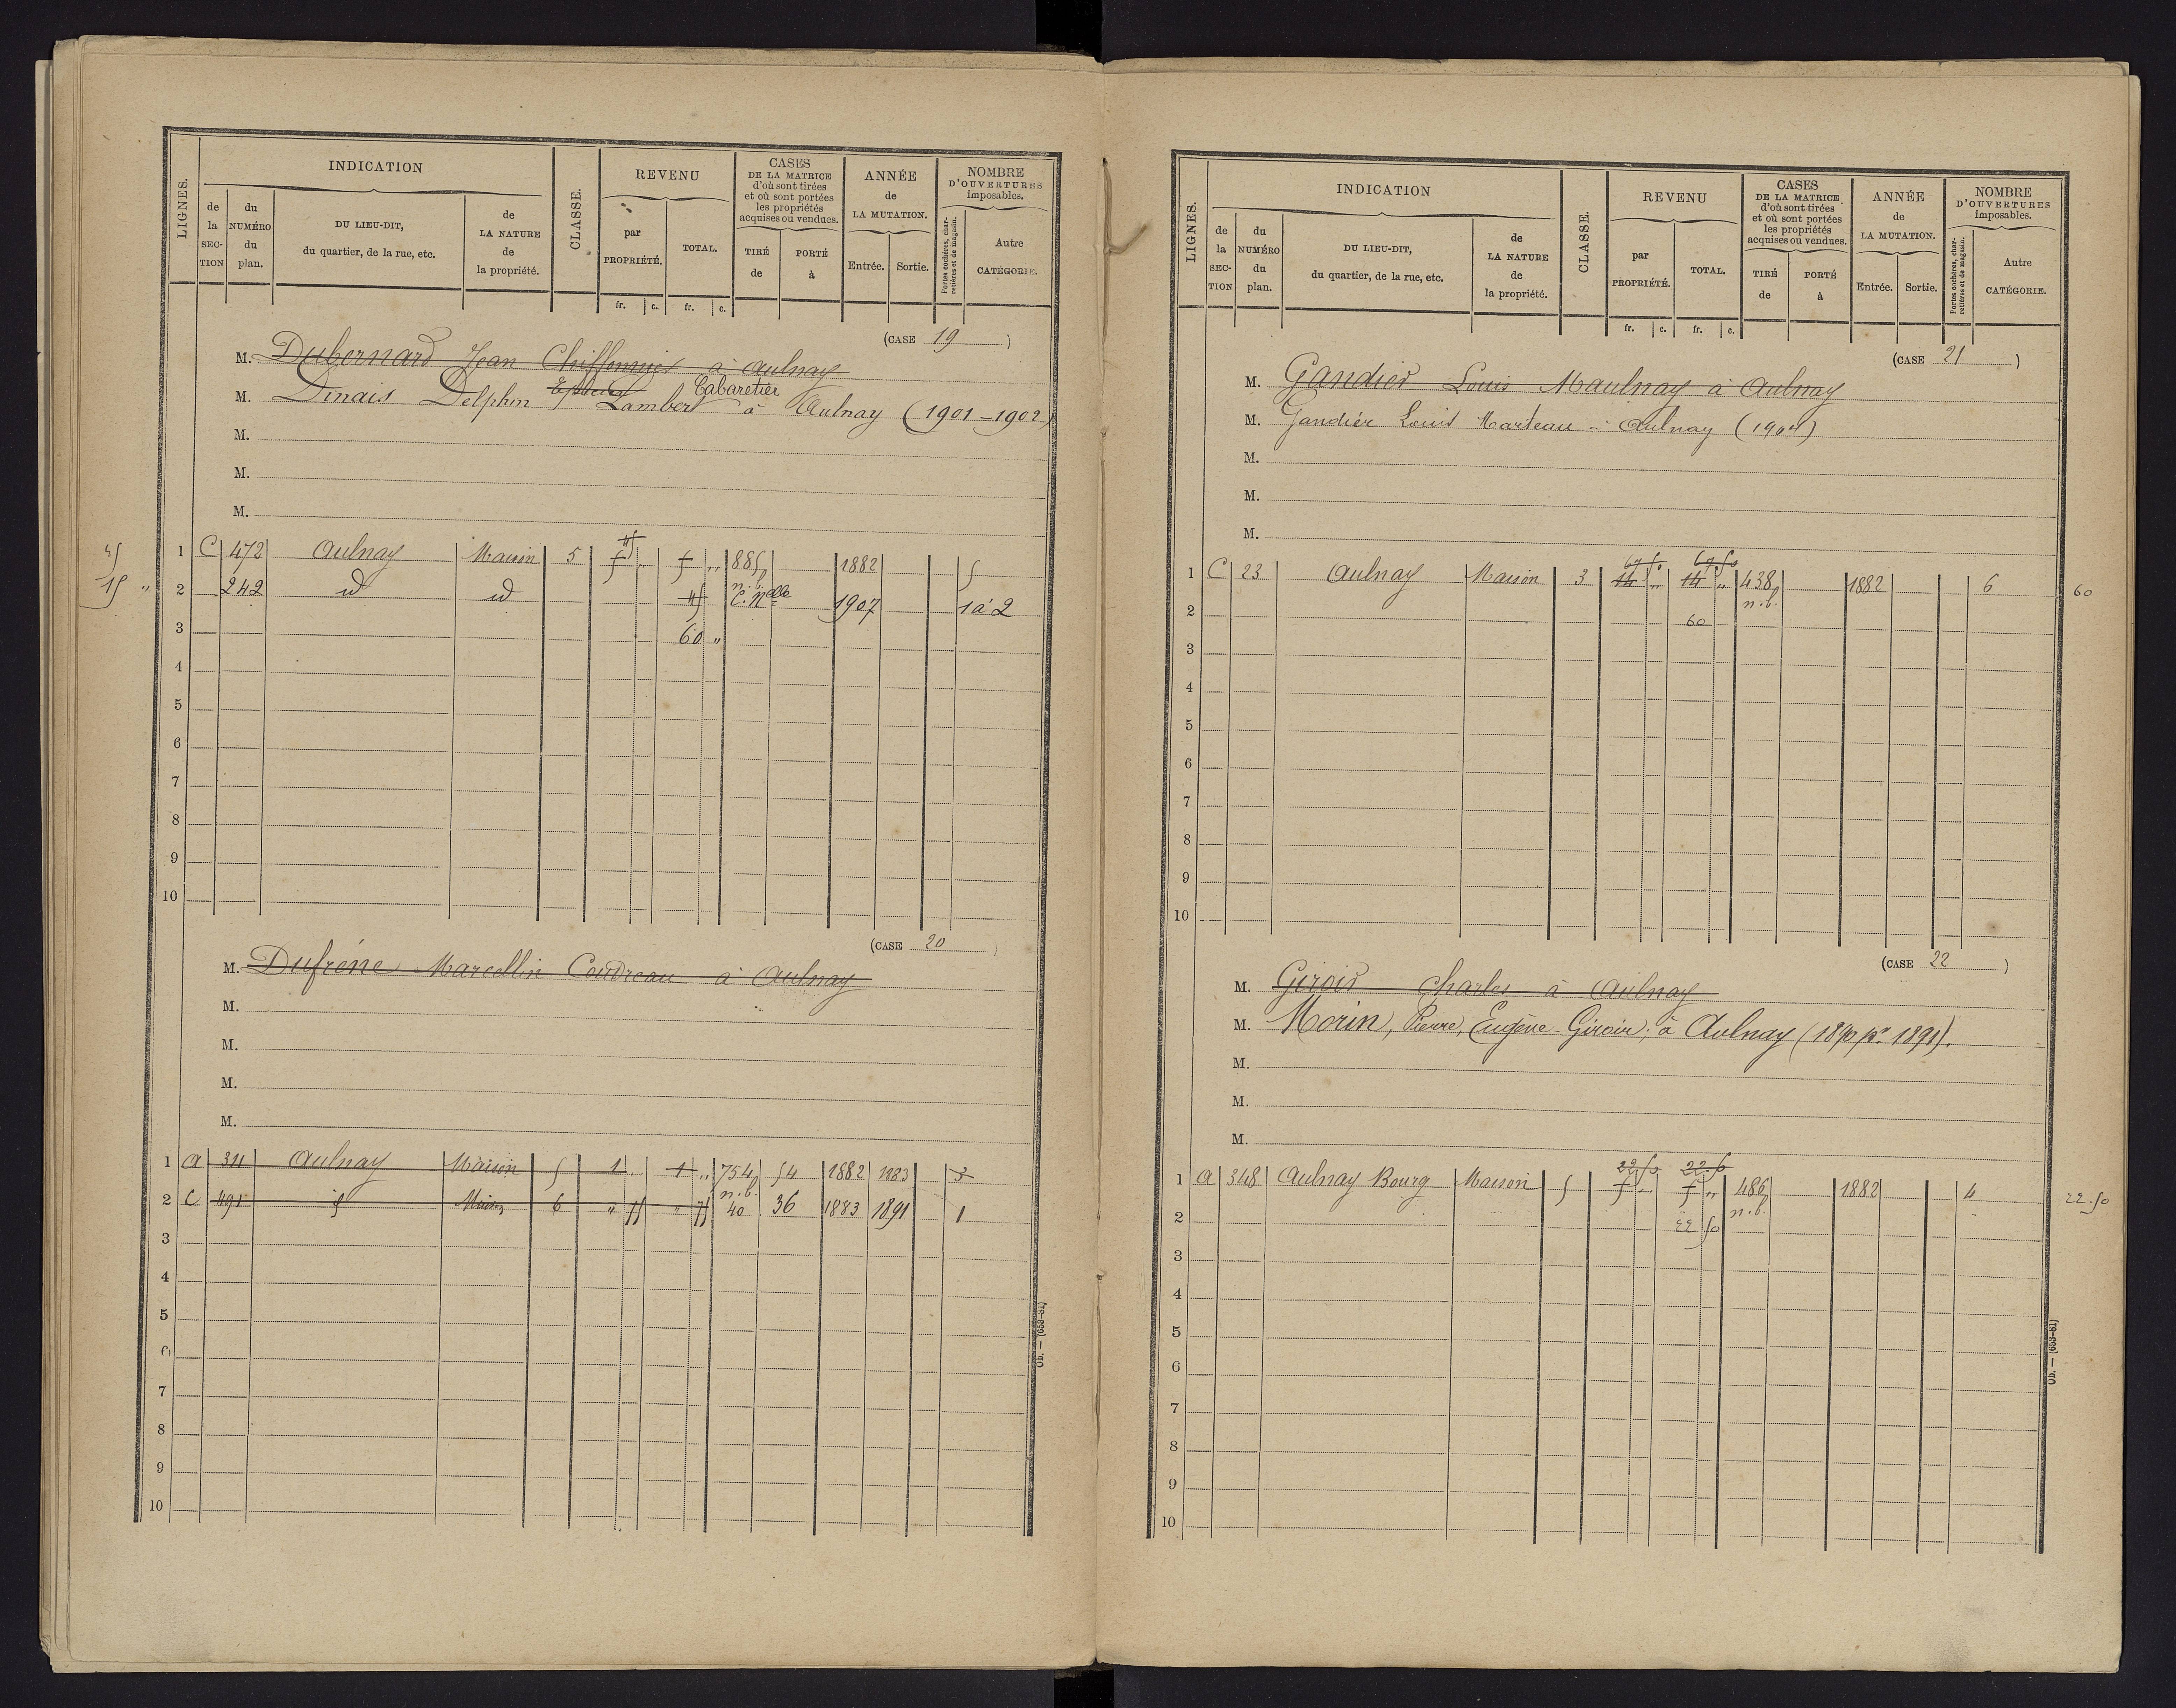 LIGNES.
INDICATION
de la SECTION
du NUMÉRO du plan.
DU LIEU-DIT, du quartier, de la rue, etc.
de LA NATURE de la propriété.
CLASSE.
REVENU
par PROPRIÉTÉ.
TOTAL.
fr. c. fr. c.
CASES DE LA MATRICE d'où sont tirées et où sont portées les propriétés acquises ou vendues.
TIRÉ de
PORTÉ à
ANNÉE de LA MUTATION.
Entrée. Sortie.
NOMBRE D'OUVERTURES imposables.
Portes cochères, charretières et de magasin.
Autre CATÉGORIE.
(CASE 19)
M. Dubernard Jean Chiffonnier à Aulnay
Cabaretier
M. Dinais Delphin Lambert à Aulnay (1901-1902)
M.
M.
M.
45
45
1 C 472 Aulnay Maison 5 5 " 5 " 885 1882 5
n.b.
15 " 2 242 id id 45 C. Nelle 1907 1 à 2
3 60 "
4
5
6
7
8
9
10
(CASE 20)
M. Dufrêne Marcellin Coudreau à Aulnay
M.
M.
M.
M.
1 A 311 Aulnay Maison 5 1 " 1 " 754 54 1882 1883 3
n.b.
2 C 491 id Maison 6 " 75 " 75 40 36 1883 1891 1
3
4
5
6
7
8
9
10
Ob. — (653-81)
LIGNES.
INDICATION
de la SECTION
du NUMÉRO du plan.
DU LIEU-DIT, du quartier, de la rue, etc.
de LA NATURE de la propriété.
CLASSE.
REVENU
par PROPRIÉTÉ.
TOTAL.
fr. c. fr. c.
CASES DE LA MATRICE d'où sont tirées et où sont portées les propriétés acquises ou vendues.
TIRÉ de
PORTÉ à
ANNÉE de LA MUTATION.
Entrée. Sortie.
NOMBRE D'OUVERTURES imposables.
Portes cochères, charretières et de magasin.
Autre CATÉGORIE.
(CASE 21)
M. Gandier Louis Maulnay à Aulnay
M. Gandier Louis Marteau à Aulnay (1904)
M.
M.
M.
67.50 67.50
1 C 23 Aulnay Maison 3 14 " 14 " 438 1882 6 60
n.b.
2 60
3
4
5
6
7
8
9
10
(CASE 22)
M. Giroir Charles à Aulnay
M. Morin, Pierre, Eugène-Giroir, à Aulnay (1890 pr. 1891).
M.
M.
M.
22.50 22.50
1 A 348 Aulnay Bourg Maison 5 5 " 5 " 486 1882 4 22.50
n.b.
2 22 50
3
4
5
6
7
8
9
10
Ob. — (653-81)